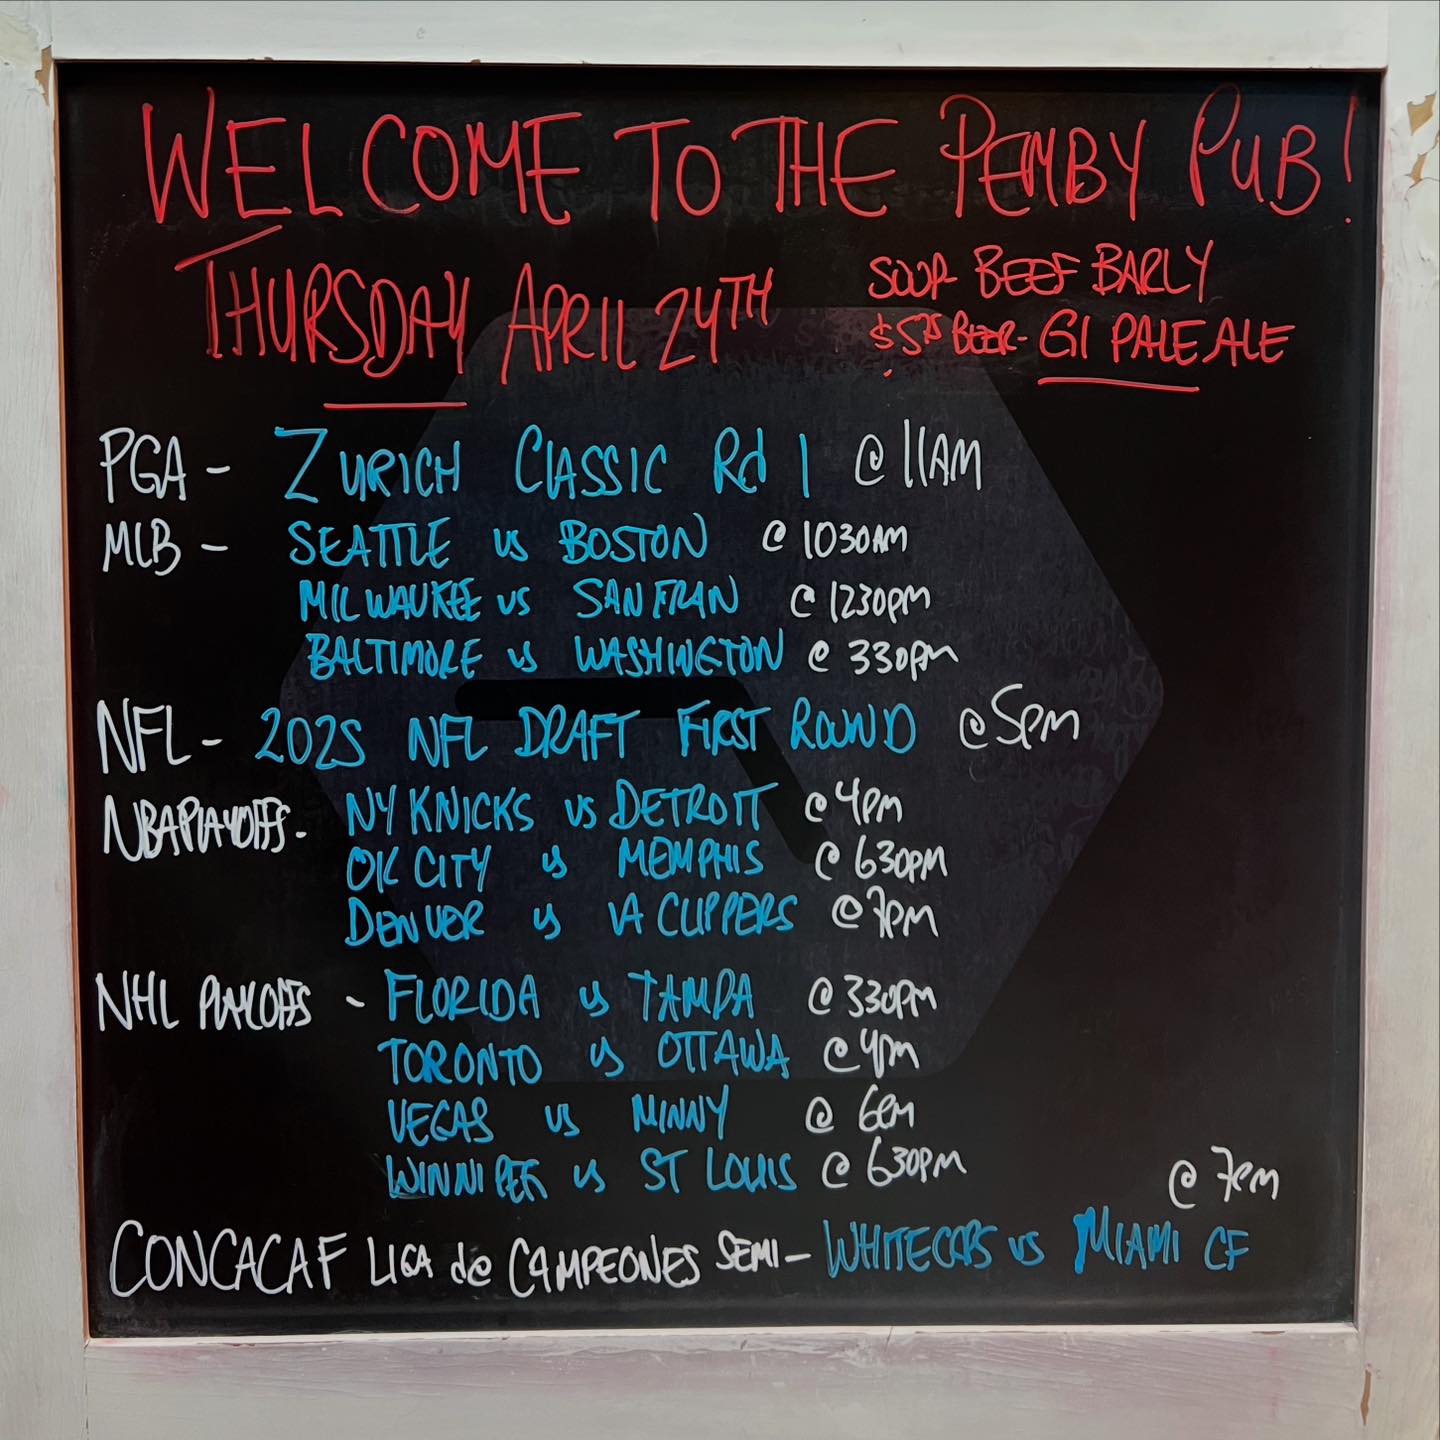 WELCOME TO THE PEMBY PUB!
THURSDAY APRIL 24TH
SOUP- BEEF BARLY
$5.75 BEER- GI PALE ALE
PGA - ZURICH CLASSIC Rd 1 @ 11AM
MLB - SEATTLE vs BOSTON @ 1030AM
MILWAUKEE vs SAN FRAN @ 1230PM
BALTIMORE vs WASHINGTON @ 330PM
NFL - 2025 NFL DRAFT FIRST ROUND @ 5PM
NBA PLAYOFFS - NY KNICKS vs DETROIT @ 4PM
OK CITY vs MEMPHIS @ 630PM
DENVER vs LA CLIPPERS @ 7PM
NHL PLAYOFFS - FLORIDA vs TAMPA @ 330PM
TORONTO vs OTTAWA @ 4PM
VEGAS vs MINNY @ 6PM
WINNIPEG vs ST LOUIS @ 630PM
@ 7PM
CONCACAF LIGA de CAMPEONES SEMI - WHITECAPS vs MIAMI CF